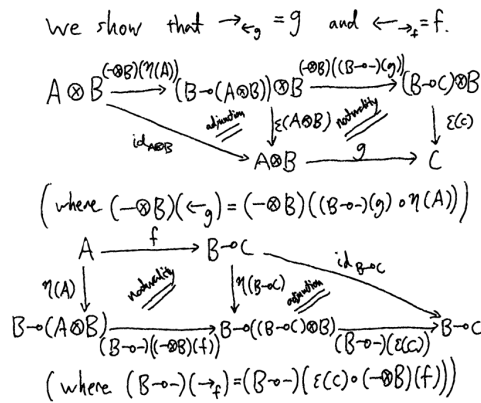 We show that →_{←_g} = g and ←_{→_f} = f.
(-⊗B)(η(A)) (-⊗B)((B⊸-)(g))
A⊗B (B⊸(A⊗B))⊗B (B⊸C)⊗B
id_{A⊗B} adjunction ε(A⊗B) naturality ε(C)
A⊗B g C
(where (-⊗B)(←_g) = (-⊗B)((B⊸-)(g) ∘ η(A)))
A f B⊸C
η(A) naturality η(B⊸C) adjunction id_{B⊸C}
B⊸(A⊗B) B⊸((B⊸C)⊗B) B⊸C
(B⊸-)((-⊗B)(f)) (B⊸-)(ε(C))
(where (B⊸-)(→_f) = (B⊸-)(ε(C) ∘ (-⊗B)(f)))